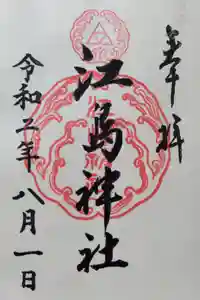 奉拝
江島神社
令和二年八月一日